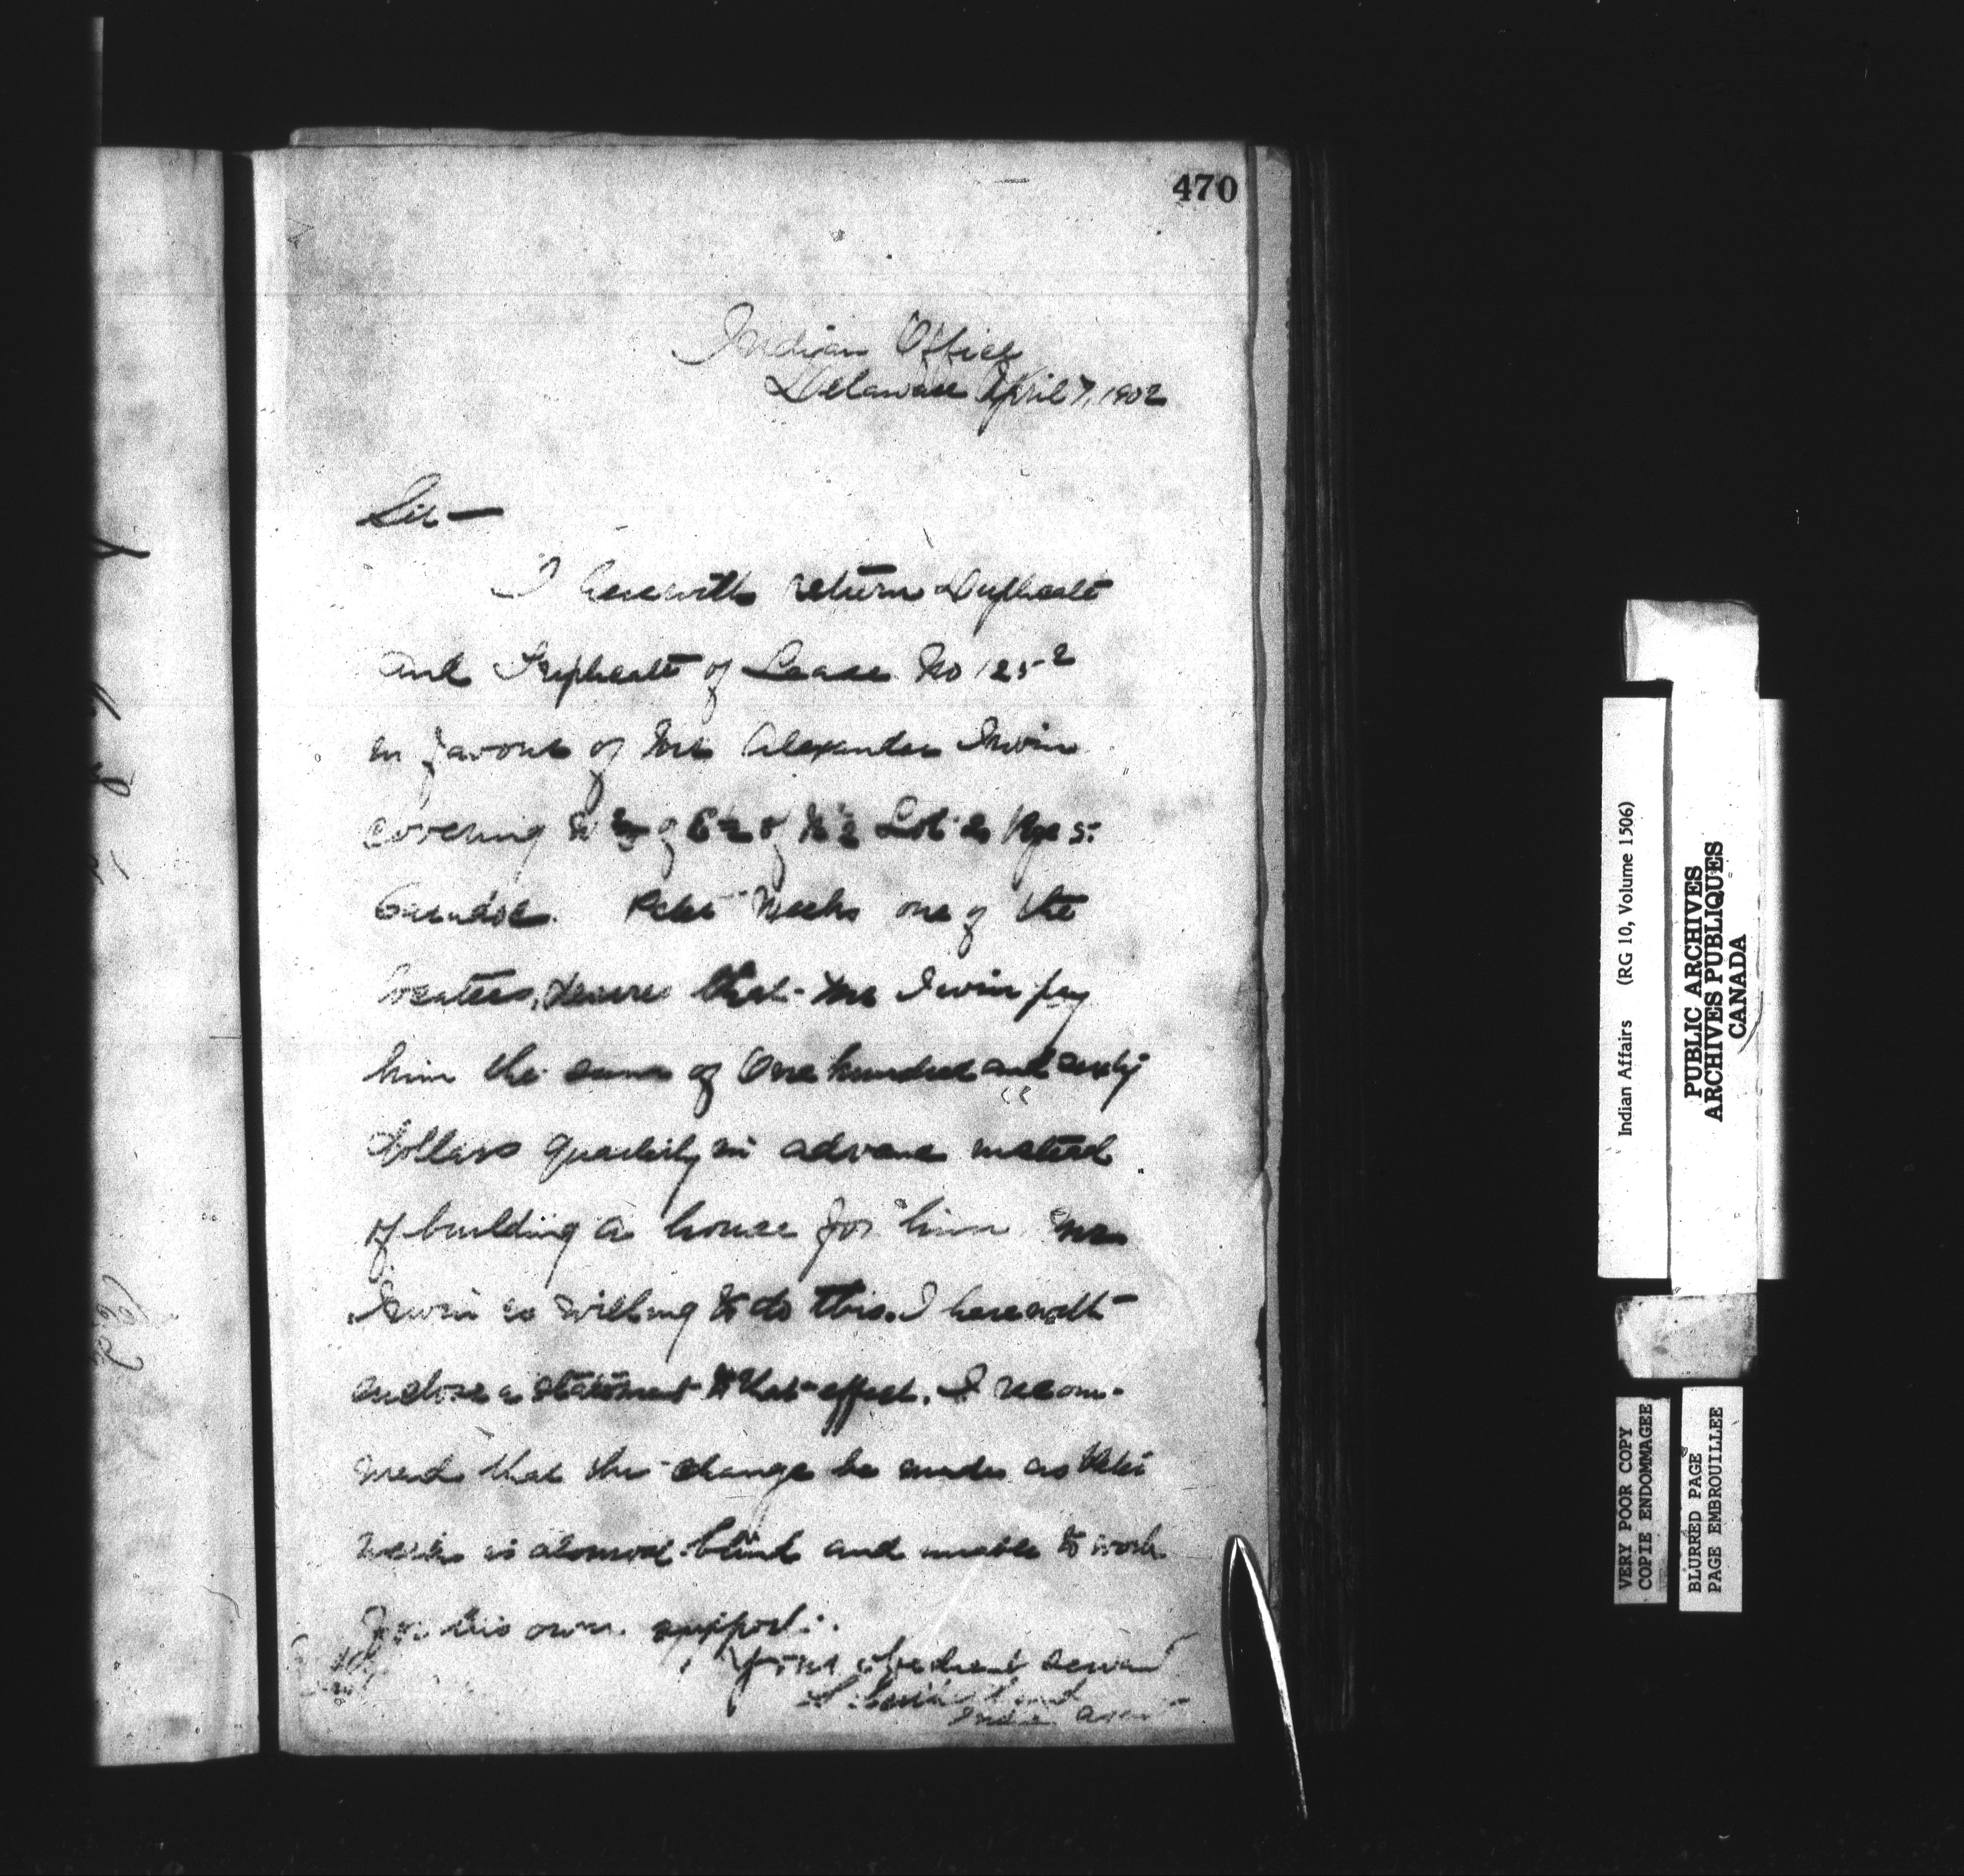 470
Indian Office
Delaware April 7, 1902
Sir —
I herewith return Duplicate
and Triplicate of Lease No 1252
in favour of Mr Alexander Irwin
covering of E½ of N½ Lot 2 Rge 5
Caradoc. Peter one of the
locatees, desires that Mr Irwin pay
him the sum of One hundred and sixty
dollars quarterly in advance instead
of building a house for him Mr
Irwin is willing to do this. I herewith
enclose a statement to that effect. I recom-
mend that the change be made as Peter
is almost blind and unable to work
for his own support.
Your obedient servant
S. Sutherland
Indian Agent
Indian Affairs (RG 10, Volume 1506)
PUBLIC ARCHIVES
ARCHIVES PUBLIQUES
CANADA
VERY POOR COPY
COPIE ENDOMMAGEE
BLURED PAGE
PAGE EMBROUILLEE